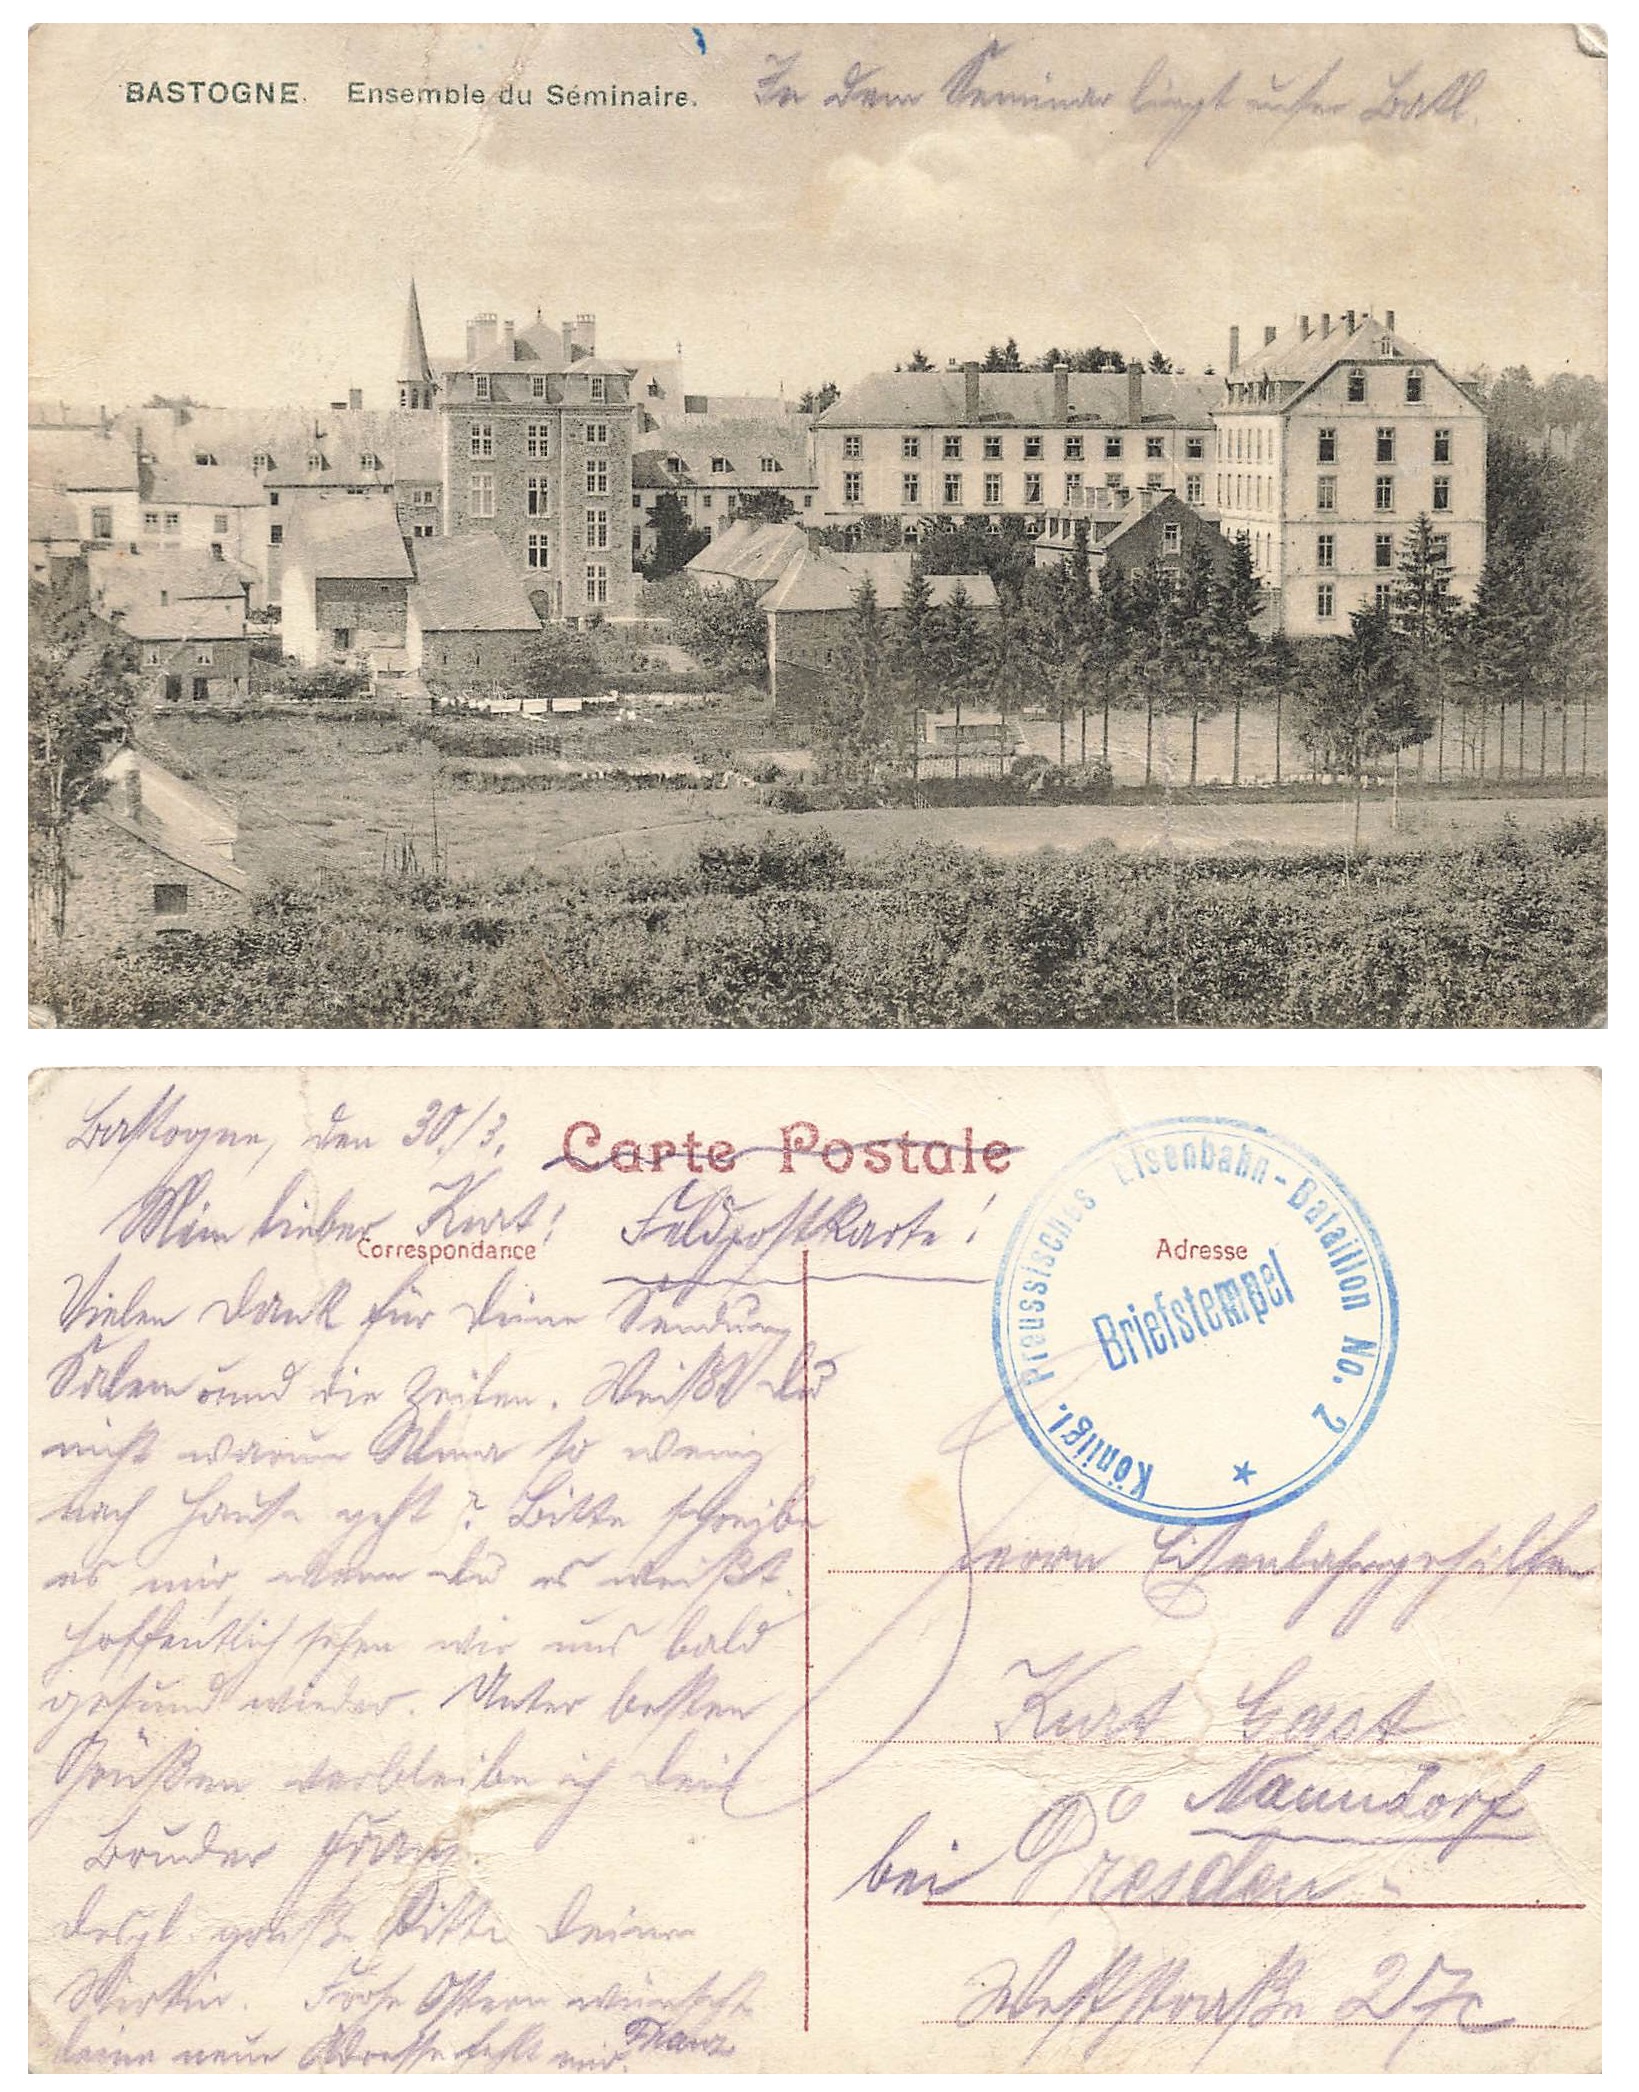 BASTOGNE. Ensemble du Séminaire.
In dem Seminar liegt unser Batl.
Bastogne, den 30./3.
Carte Postale
Mein lieber Kurt!
Feldpostkarte!
Correspondance
Adresse
Königl. Preussisches Eisenbahn-Bataillon No. 2
Briefstempel
Vielen Dank für Deine Sendung
Salem und die Zeilen. Weißt Du
nicht warum Mama so wenig
nach Hause geht? Bitte schreibe
es mir, wenn Du es weißt.
Hoffentlich sehen wir uns bald
gesund wieder. Unter besten
Grüßen verbleibe ich Dein
Bruder Franz.
Desgl. grüße bitte Deine
Wirtin. Frohe Ostern wünscht
Deine neue Adresse fehlt mir. Franz
Herrn Eisenbahngehilfen
Kurt Gast
Naundorf
bei Dresden
Weststraße 27c